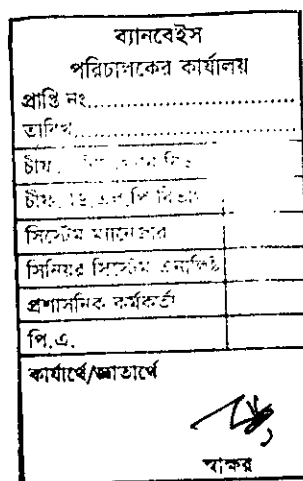 ব্যানবেইস
পরিচালকের কার্যালয়
প্রাপ্তি নং..............................
তারিখ..............................
চীফ,
চীফ,
সিস্টেম ম্যানেজার
সিনিয়র সিস্টেম এনালিষ্ট
প্রশাসনিক কর্মকর্তা
পি.এ.
কার্যার্থে/জ্ঞাতার্থে
স্বাক্ষর